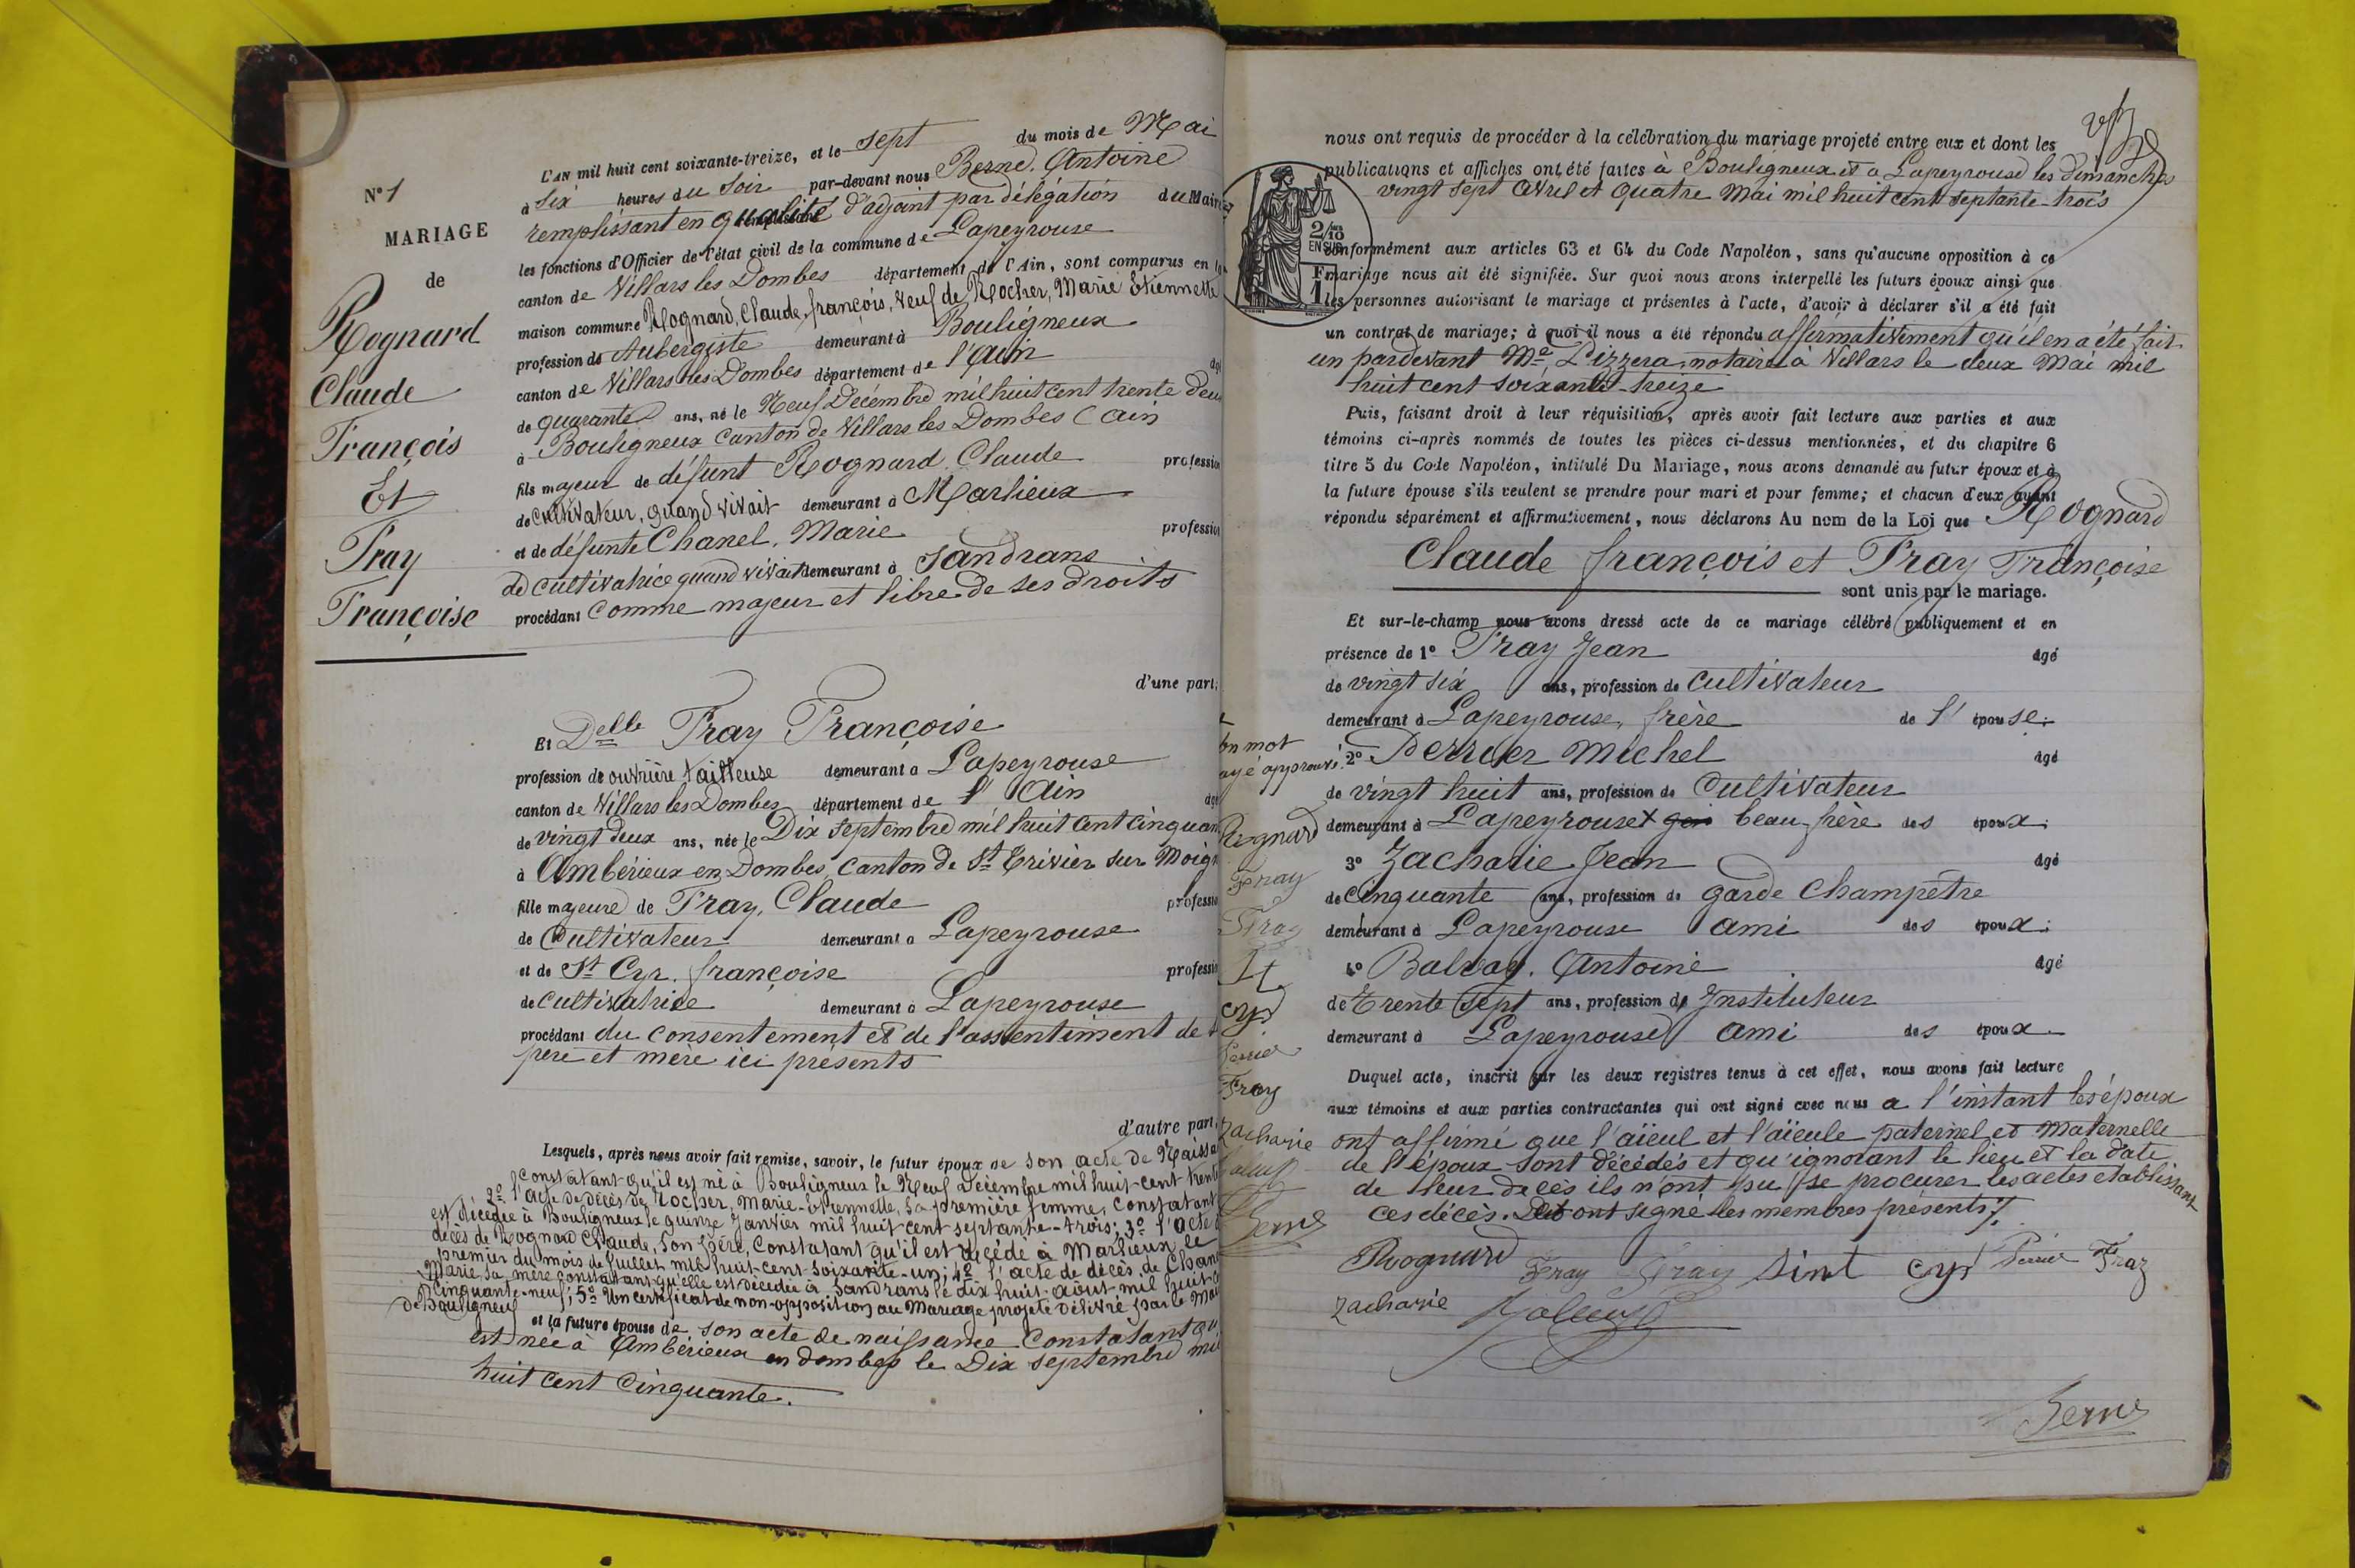 N° 1
MARIAGE
de
Rognard
Claude
François
Et
Fray
Françoise
L'AN mil huit cent soixante-treize, et le sept du mois de Mai
à six heures du soir par-devant nous Berne, Antoine
remplissant en qualité d'adjoint par délégation du Maire
les fonctions d'Officier de l'état civil de la commune de Lapeyrouse
canton de Villars les Dombes département de l'Ain, sont comparus en la
maison commune Rognard, Claude, françois, veuf de Rocher, Marie Etiennette
profession de Aubergiste demeurant à Bouligneux
canton de Villars les Dombes département de l'Ain âgé
de quarante ans, né le Neuf Décembre mil huit cent trente deux
à Bouligneux Canton de Villars les Dombes (Ain
fils majeur de défunt Rognard Claude profession
de Cultivateur, quand vivait demeurant à Marlieux
et de défunte Chanel, Marie profession
de cultivatrice quand vivait demeurant à Sandrans
procédant comme majeur et libre de ses droits
d'une part;
Et Delle Fray Françoise
profession de ouvrière tailleuse demeurant à Lapeyrouse
canton de Villars les Dombes département de l'Ain âgé
de vingt deux ans, née le Dix septembre mil huit cent cinquan
à Ambérieux en Dombes, Canton de St Trivier sur Moign
fille majeure de Fray, Claude profession
de Cultivateur demeurant à Lapeyrouse
et de St Cyr. françoise profession
de cultivatrice demeurant à Lapeyrouse
procédant du consentement et de l'assentiment de
père et mère ici présents
d'autre part.
Lesquels, après nous avoir fait remise, savoir, le futur époux de son acte de Naissa
constatant qu'il est né à Bouligneux le Neuf Décembre mil huit-cent-trente
2° l'acte de décès de Rocher, Marie-Etiennette, sa première femme, constatant
est décédée à Bouligneux le quinze Janvier mil huit cent septante-trois; 3° l'acte
décès de Rognard Claude, son Père, Constatant qu'il est décédé à Marlieux le
premier du mois de Juillet mil huit-cent-soixante-un; 4° l'acte de décès de Chan
Marie sa mère constatant qu'elle est décédée à Sandrans le dix huit août mil huit-c
cinquante-neuf; 5° Un certificat de non-opposition au Mariage projeté délivré par le Mai
de Bouligneux
et la future épouse de son acte de naissance Constatant qu
est née à Ambérieux en dombes le Dix septembre mil
huit cent cinquante.
nous ont requis de procéder à la célébration du mariage projeté entre eux et dont les
publications et affiches ont été faites à Bouligneux et à Lapeyrouse les dimanches
vingt sept Avril et quatre Mai mil huit cent septante-trois
2/10 EN SUS
conformément aux articles 63 et 64 du Code Napoléon, sans qu'aucune opposition à ce
mariage nous ait été signifiée. Sur quoi nous avons interpellé les futurs époux ainsi que
les personnes autorisant le mariage et présentes à l'acte, d'avoir à déclarer s'il a été fait
un contrat de mariage; à quoi il nous a été répondu affirmativement qu'il en a été fait
un pardevant Me, Pizzera, notaire à Villars le deux Mai mil
huit cent soixante-treize
Puis, faisant droit à leur réquisition, après avoir fait lecture aux parties et aux
témoins ci-après nommés de toutes les pièces ci-dessus mentionnées, et du chapitre 6
titre 5 du Code Napoléon, intitulé Du Mariage, nous avons demandé au futur époux et à
la future épouse s'ils veulent se prendre pour mari et pour femme; et chacun d'eux ayant
répondu séparément et affirmativement, nous déclarons Au nom de la Loi que Rognard
Claude françois et Fray Françoise
sont unis par le mariage.
Et sur-le-champ nous avons dressé acte de ce mariage célébré publiquement et en
présence de 1° Fray Jean âgé
de vingt six ans, profession de cultivateur
demeurant à Lapeyrouse, frère de l'épouse;
2° Perrier Michel âgé
de vingt huit ans, profession de Cultivateur
demeurant à Lapeyrouse beau frère des époux;
3° Zacharie Jean âgé
de Cinquante ans, profession de garde Champêtre
demeurant à Lapeyrouse Ami des époux;
4° Balvay. Antoine âgé
de Trente sept ans, profession de Instituteur
demeurant à Lapeyrouse Ami des époux.
Duquel acte, inscrit sur les deux registres tenus à cet effet, nous avons fait lecture
aux témoins et aux parties contractantes qui ont signé avec nous a l'instant les époux
ont affirmé que l'aïeul et l'aïeule paternel et Maternelle
de l'époux sont décédés et qu'ignorant le lieu et la date
de leur décès ils n'ont pu se procurer les actes établissant
ces décès. Et ont signé les membres présents
Rognard Fray Fray Sint Cyr Perrier Fray
Zacharie
Berne
un mot
rayé approuvé
Rognard
Fray
Fray
St
Cyr
Perrier
Fray
Zacharie
Berne